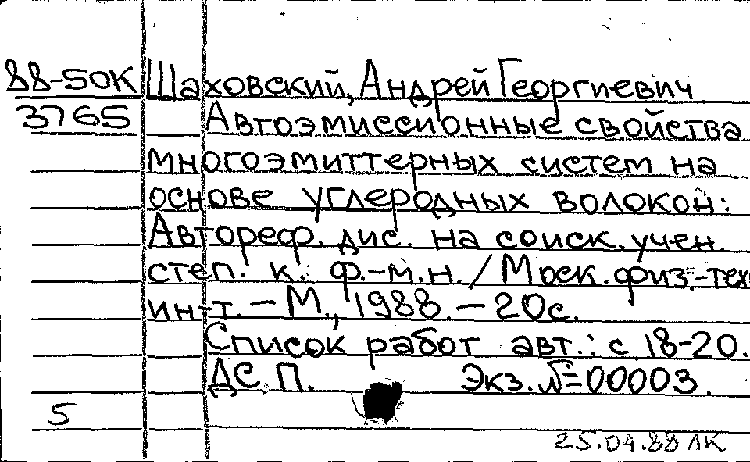 88-50К Шаховский, Андрей Георгиевич
3765 Автоэмиссионные свойства
многоэмиттерных систем на
основе углеродных волокон:
Автореф. дис. на соиск. учен.
степ. к. ф.-м.н. / Моск. физ.-тех
ин-т. – М., 1988. – 20с.
Список работ авт.: с 18-20.
ДСП. Экз. №=00003.
5
25.04.88 ЛК